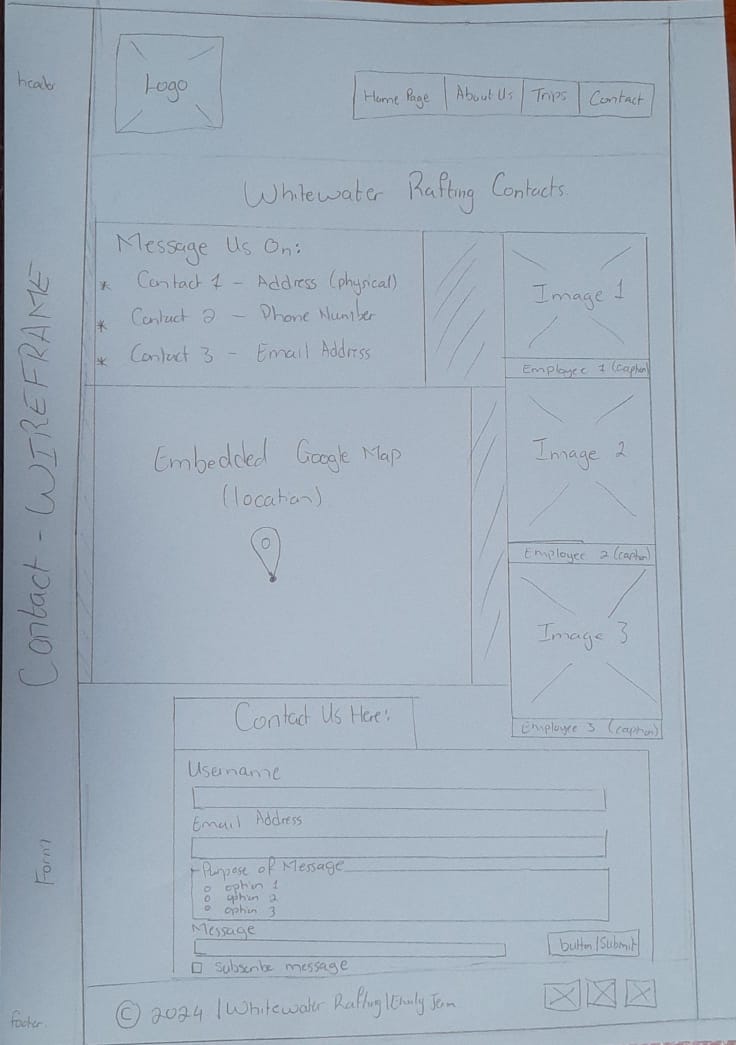 header
Logo
Home Page
About Us
Trips
Contact
Contact - WIREFRAME
Whitewater Rafting Contacts.
Message Us On:
* Contact 1 - Address (physical)
* Contact 2 - Phone Number
* Contact 3 - Email Address
Image 1
Employee 1 (caption)
Image 2
Employee 2 (caption)
Image 3
Employee 3 (caption)
Embedded Google Map
(location)
Form
Contact Us Here:
Username
Email Address
Purpose of Message
option 1
option 2
option 3
Message
button/Submit
Subscribe message
footer
© 2024 | Whitewater Rafting |